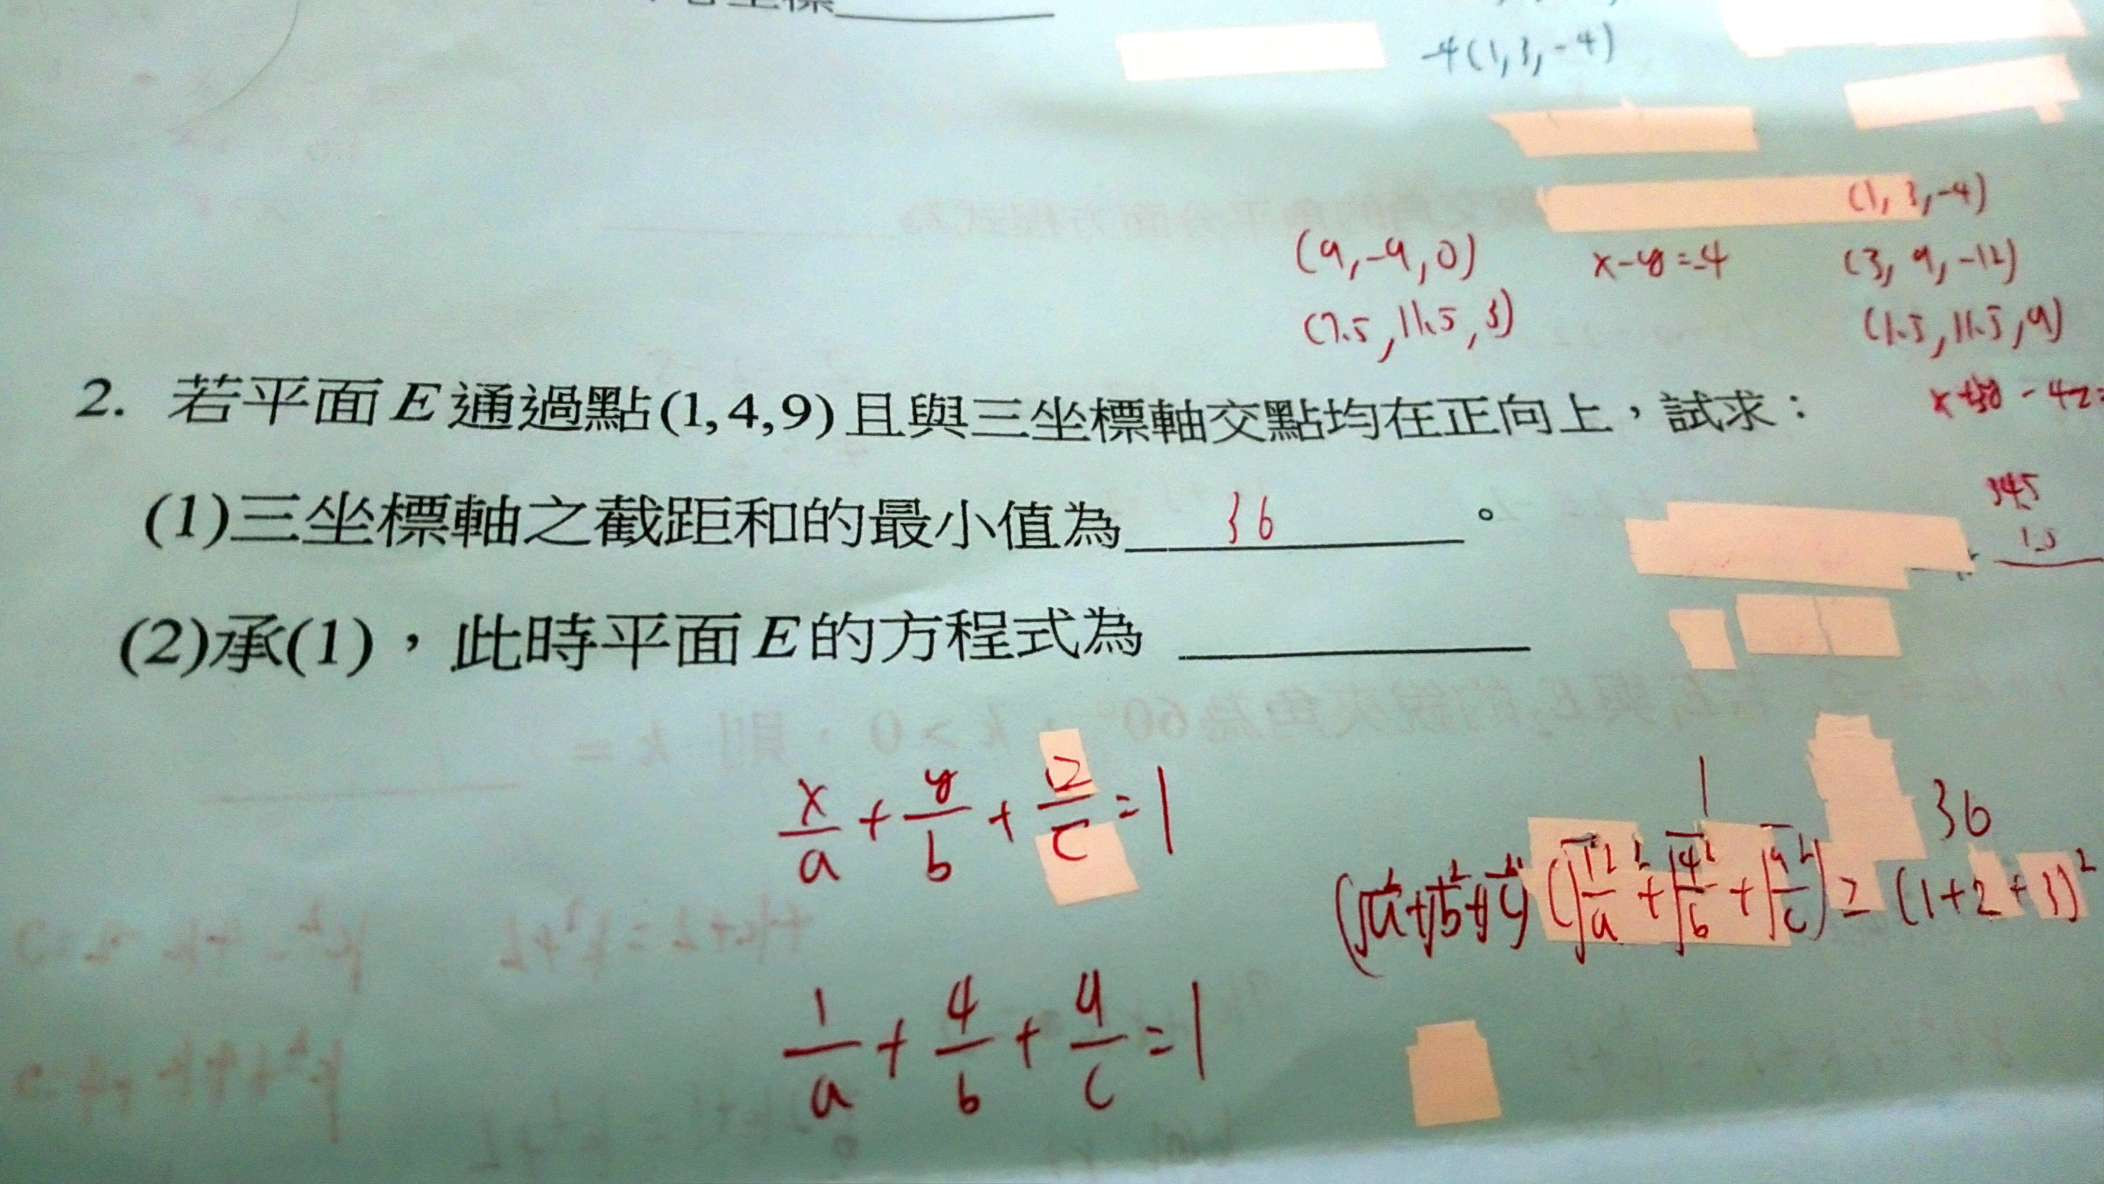 -4(1,3,-4)
(1,3,-4)
(9,-9,0) x-y=-4 (3,9,-12)
(7.5,11.5,3) (1.5,11.5,9)
2. 若平面E通過點(1,4,9)且與三坐標軸交點均在正向上，試求：
(1)三坐標軸之截距和的最小值為 36 。
(2)承(1)，此時平面E的方程式為
x/a + y/b + z/c = 1
1 36
(√a²+√b²+√c²)(√(1/a)²+√(4/b)²+√(9/c)²) ≥ (1+2+3)²
1/a + 4/b + 9/c = 1